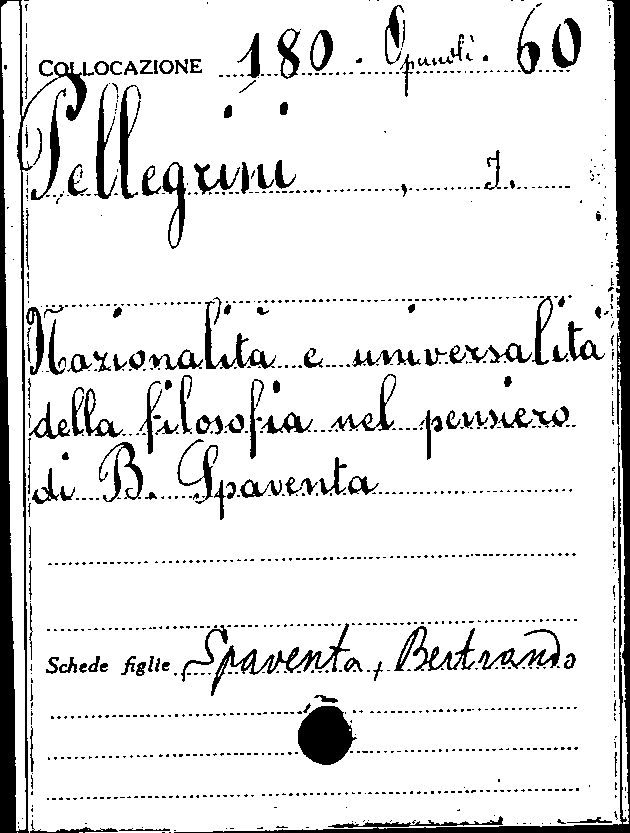 COLLOCAZIONE 180. Opuscoli. 60
Pellegrini, J.
Nazionalità e universalità
della filosofia nel pensiero
di B. Spaventa
Schede figlie Spaventa, Bertrando